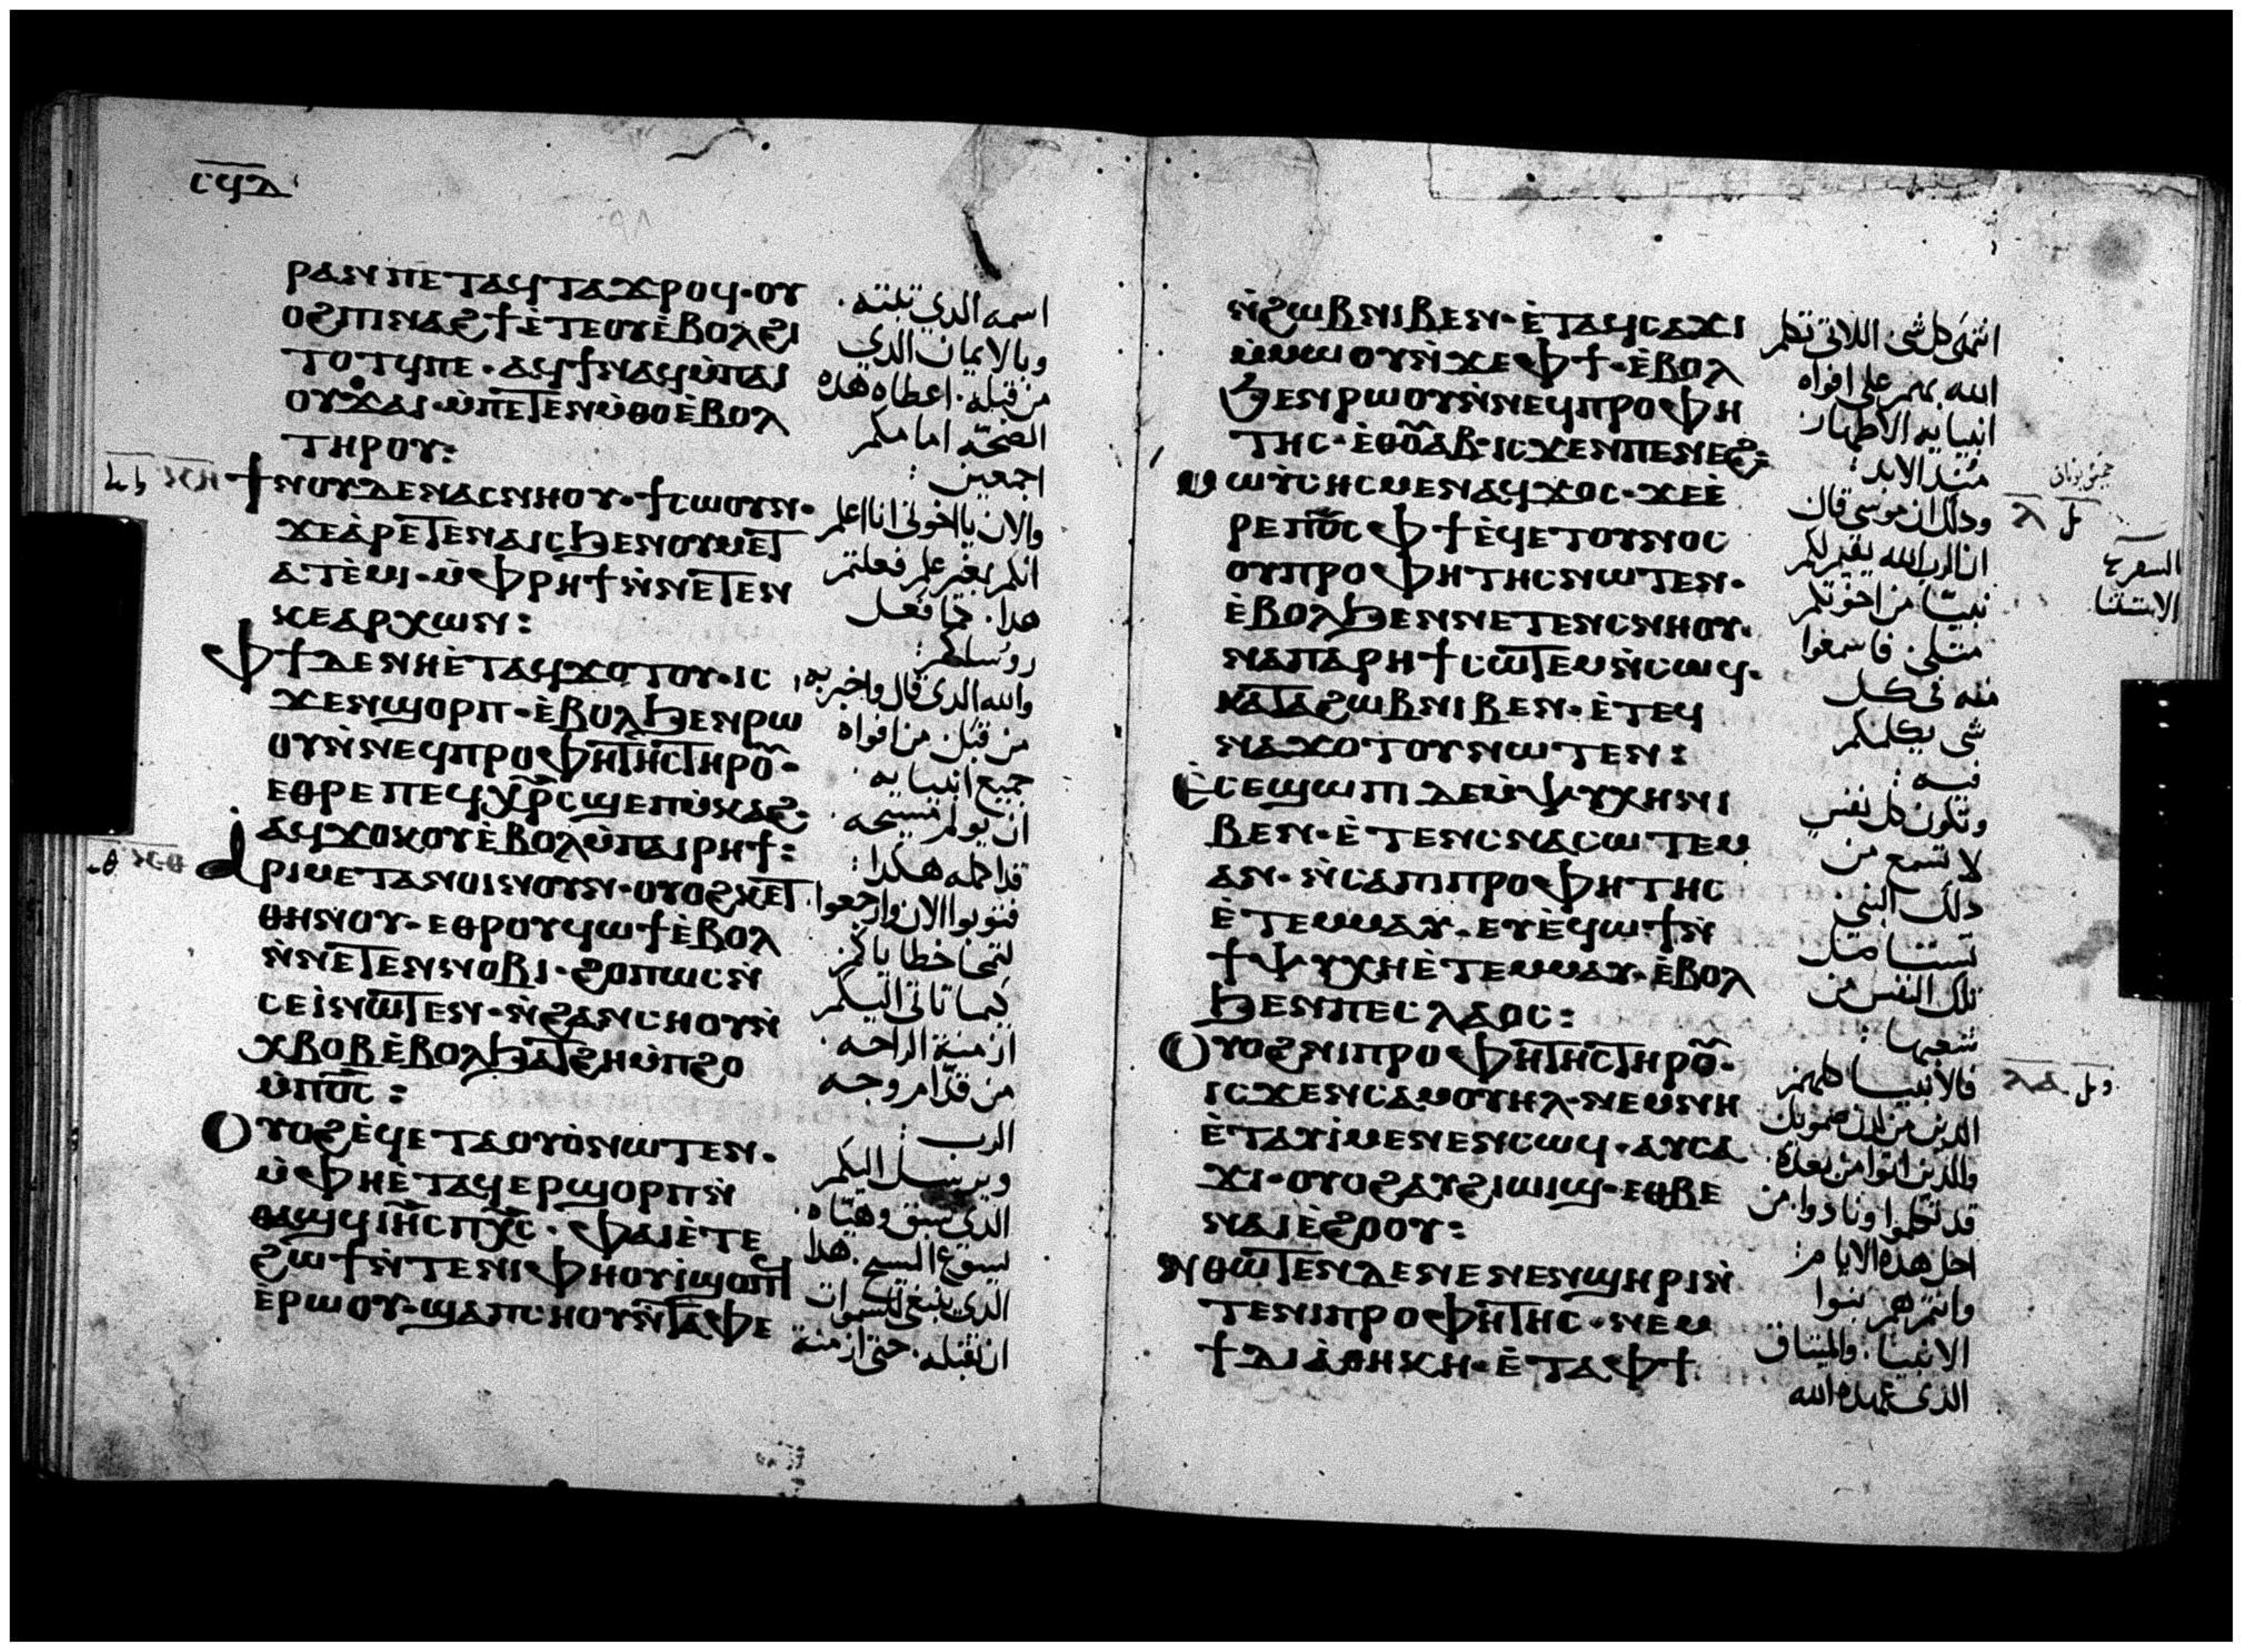 ⲥϥⲇ
ⲣⲁⲛ ⲡⲉⲧⲁϥⲧⲁϫⲣⲟϥ· ⲟⲩ
ⲟϩ ⲡⲓⲛⲁϩϯ ⲉ̀ⲧⲉ ⲟⲩⲉ̀ⲃⲟⲗ ϩⲓ
ⲧⲟⲧϥ ⲡⲉ· ⲁϥϯ ⲛⲁϥ ⲙ̀ⲡⲁⲓ
ⲟⲩϫⲁⲓ· ⲙ̀ⲡⲉⲧⲉⲛⲙ̀ⲑⲟ ⲉ̀ⲃⲟⲗ
ⲧⲏⲣⲟⲩ:
ϯⲛⲟⲩ ⲇⲉ ⲛⲁⲥⲛⲏⲟⲩ· ϯⲥⲱⲟⲩⲛ·
ϫⲉ ⲁ̀ⲣⲉⲧⲉⲛⲁⲓⲥ ϧⲉⲛ ⲟⲩⲙⲉⲧ
ⲁⲧⲉ̀ⲙⲓ· ⲙ̀ⲫⲣⲏϯ ⲛ̀ⲛⲉⲧⲉⲛ
ⲕⲉⲁⲣⲭⲱⲛ:
ⲫϯ ⲇⲉ ⲛⲏ ⲉ̀ⲧⲁϥϫⲟⲧⲟⲩ· ⲓⲥ
ϫⲉⲛ ϣⲟⲣⲡ· ⲉ̀ⲃⲟⲗ ϧⲉⲛ ⲣⲱ
ⲟⲩ ⲛ̀ⲛⲉϥⲡⲣⲟⲫⲏⲧⲏⲥ ⲧⲏⲣⲟ̅̅·
ⲉⲑⲣⲉ ⲡⲉϥⲭ̅ⲣ̅ⲥ ϣⲉⲡⲙ̀ⲕⲁϩ·
ⲁϥϫⲟⲕⲟⲩ ⲉ̀ⲃⲟⲗ ⲙ̀ⲡⲁⲓⲣⲏϯ:
ⲁⲣⲓⲙⲉⲧⲁⲛⲟⲓⲛ ⲟⲩⲛ· ⲟⲩⲟϩ ⲕⲉⲧ
ⲑⲏⲛⲟⲩ· ⲉⲑⲣⲟⲩϥⲱϯ ⲉ̀ⲃⲟⲗ
ⲛ̀ⲛⲉⲧⲉⲛⲛⲟⲃⲓ· ϩⲟⲡⲱⲥ ⲛ̀
ⲥⲉⲓ̀ ⲛⲱⲧⲉⲛ· ⲛ̀ϩⲁⲛⲥⲏⲟⲩ ⲛ̀
ⲭⲃⲟⲃ ⲉ̀ⲃⲟⲗ ϧⲁⲧϩⲏ ⲙ̀ⲡϩⲟ
ⲙ̀ⲡⲟ̅ⲥ̅:
ⲟⲩⲟϩ ⲉ̀ϥⲉⲧⲁⲟⲩⲟ̀ ⲛⲱⲧⲉⲛ·
ⲙ̀ⲫⲏ ⲉ̀ⲧⲁϥⲉⲣϣⲟⲣⲡ ⲛ̀
ⲑⲁϣϥ ⲓⲏ̅ⲥ ⲡⲭ̅ⲥ̅· ⲫⲁⲓ ⲉ̀ⲧⲉ
ϩⲱϯ ⲛ̀ⲧⲉ ⲛⲓⲫⲏⲟⲩⲓ̀ ϣⲟⲡϥ
ⲉ̀ⲣⲱⲟⲩ· ϣⲁ ⲡⲥⲏⲟⲩ ⲛ̀ⲧⲁⲫⲉ
اسمه الدي تبتته·
وبالايمان الدي
من قبله· اعطاه هده
الصحّه امامكم
اجمعين:
والان يااخوتي انا اعلم
انكم بغير علم فعلتم
هدا· كما فعل
روسلكم:
والله الدي قال واخبر به
من قبل من افواه
جميع انبيايه·
ان يولم مسيحه·
قد اكمله هكدا:
فتوبوا الان وارجعوا
لتمحا خطاياكم
كيما تاتي اليكم
ازمنة الراحه·
من قدّام وجه
الرب:
ويرسل اليكم
الدي سبق وهيّاه·
ليسوع المسيح· هدا
الدي ينبغي للسموات
ان تقبله· حتي ازمنة
ⲛ̀ϩⲱⲃ ⲛⲓⲃⲉⲛ· ⲉ̀ⲧⲁϥⲥⲁϫⲓ
ⲙ̀ⲙⲱⲟⲩ ⲛ̀ϫⲉ ⲫϯ· ⲉ̀ⲃⲟⲗ
ϧⲉⲛ ⲣⲱⲟⲩ ⲛ̀ⲛⲉϥⲡⲣⲟⲫⲏ
ⲧⲏⲥ· ⲉ̀ⲑⲟ̅̅ⲁⲃ· ⲓⲥϫⲉⲛ ⲡⲉⲛⲉϩ:
ⲙⲱⲩ̀ⲥⲏⲥ ⲙⲉⲛ ⲁϥϫⲟⲥ· ϫⲉ ⲉ̀
ⲣⲉ ⲡⲟ̅ⲥ ⲫϯ ⲉ̀ϥⲉⲧⲟⲩⲛⲟⲥ
ⲟⲩⲡⲣⲟⲫⲏⲧⲏⲥ ⲛⲱⲧⲉⲛ·
ⲉ̀ⲃⲟⲗ ϧⲉⲛ ⲛⲉⲧⲉⲛⲥⲛⲏⲟⲩ·
ⲙⲡⲁⲣⲏϯ ⲥⲱⲧⲉⲙ ⲛ̀ⲥⲱϥ·
ⲕⲁⲧⲁ ϩⲱⲃ ⲛⲓⲃⲉⲛ· ⲉ̀ⲧⲉϥ
ⲛⲁϫⲟⲧⲟⲩ ⲛⲱⲧⲉⲛ:
ⲉ̀ⲥⲉϣⲱⲡⲓ ⲇⲉ ⲙ̀ⲯⲩⲭⲏ ⲛⲓ
ⲃⲉⲛ· ⲉ̀ⲧⲉⲛⲥⲛⲁⲥⲱⲧⲉⲙ
ⲁⲛ· ⲛ̀ⲥⲁ ⲡⲓⲡⲣⲟⲫⲏⲧⲏⲥ
ⲉ̀ⲧⲉⲙⲙⲁⲩ· ⲉⲩⲉ̀ϥⲱϯ ⲛ̀
ϯⲯⲩⲭⲏ ⲉ̀ⲧⲉⲙⲙⲁⲩ· ⲉ̀ⲃⲟⲗ
ϧⲉⲛ ⲡⲉⲥⲗⲁⲟⲥ:
ⲟⲩⲟϩ ⲛⲓⲡⲣⲟⲫⲏⲧⲏⲥ ⲧⲏⲣⲟ̅̅·
ⲓⲥϫⲉⲛ ⲥⲁⲙⲟⲩⲏⲗ· ⲛⲉⲙ ⲛⲏ
ⲉ̀ⲧⲁⲩⲓ̀ ⲙⲉⲛⲉⲛⲥⲱϥ· ⲁⲩⲥⲁ
ϫⲓ· ⲟⲩⲟϩ ⲁⲩϩⲓⲱⲓϣ· ⲉⲑⲃⲉ
ⲛⲁⲓⲉ̀ϩⲟⲟⲩ:
ⲛⲑⲱⲧⲉⲛ ⲇⲉ ⲛⲉⲛⲉⲛϣⲏⲣⲓ ⲛ̀
ⲧⲉ ⲛⲓⲡⲣⲟⲫⲏⲧⲏⲥ· ⲛⲉⲙ
ϯⲇⲓⲁ̀ⲑⲏⲕⲏ· ⲉ̀ⲧⲁ ⲫϯ
كل شي اللاتي تكلم
الله بهم علي افواه
انبيايه الاطهار
مند الابد:
ودلك ان موسي قال
ان الرب الله يقيم لكم
نبيّا من اخوتكم
متلي· فاسمعوا
منه في كل
شي يكلمكم
فيه:
وتكون كل نفس
لا تسمع من
دلك النبي·
تلك النفس من
شعبها:
فالانبيا كلهم
الدين من لدن صمويل
والدين اتوا من بعده·
قد تكلموا ونادوا· من
اجل هده الايام:
وانتم هم بنوا
الانبيا· والميتاق
الدي عهده الله
السفر